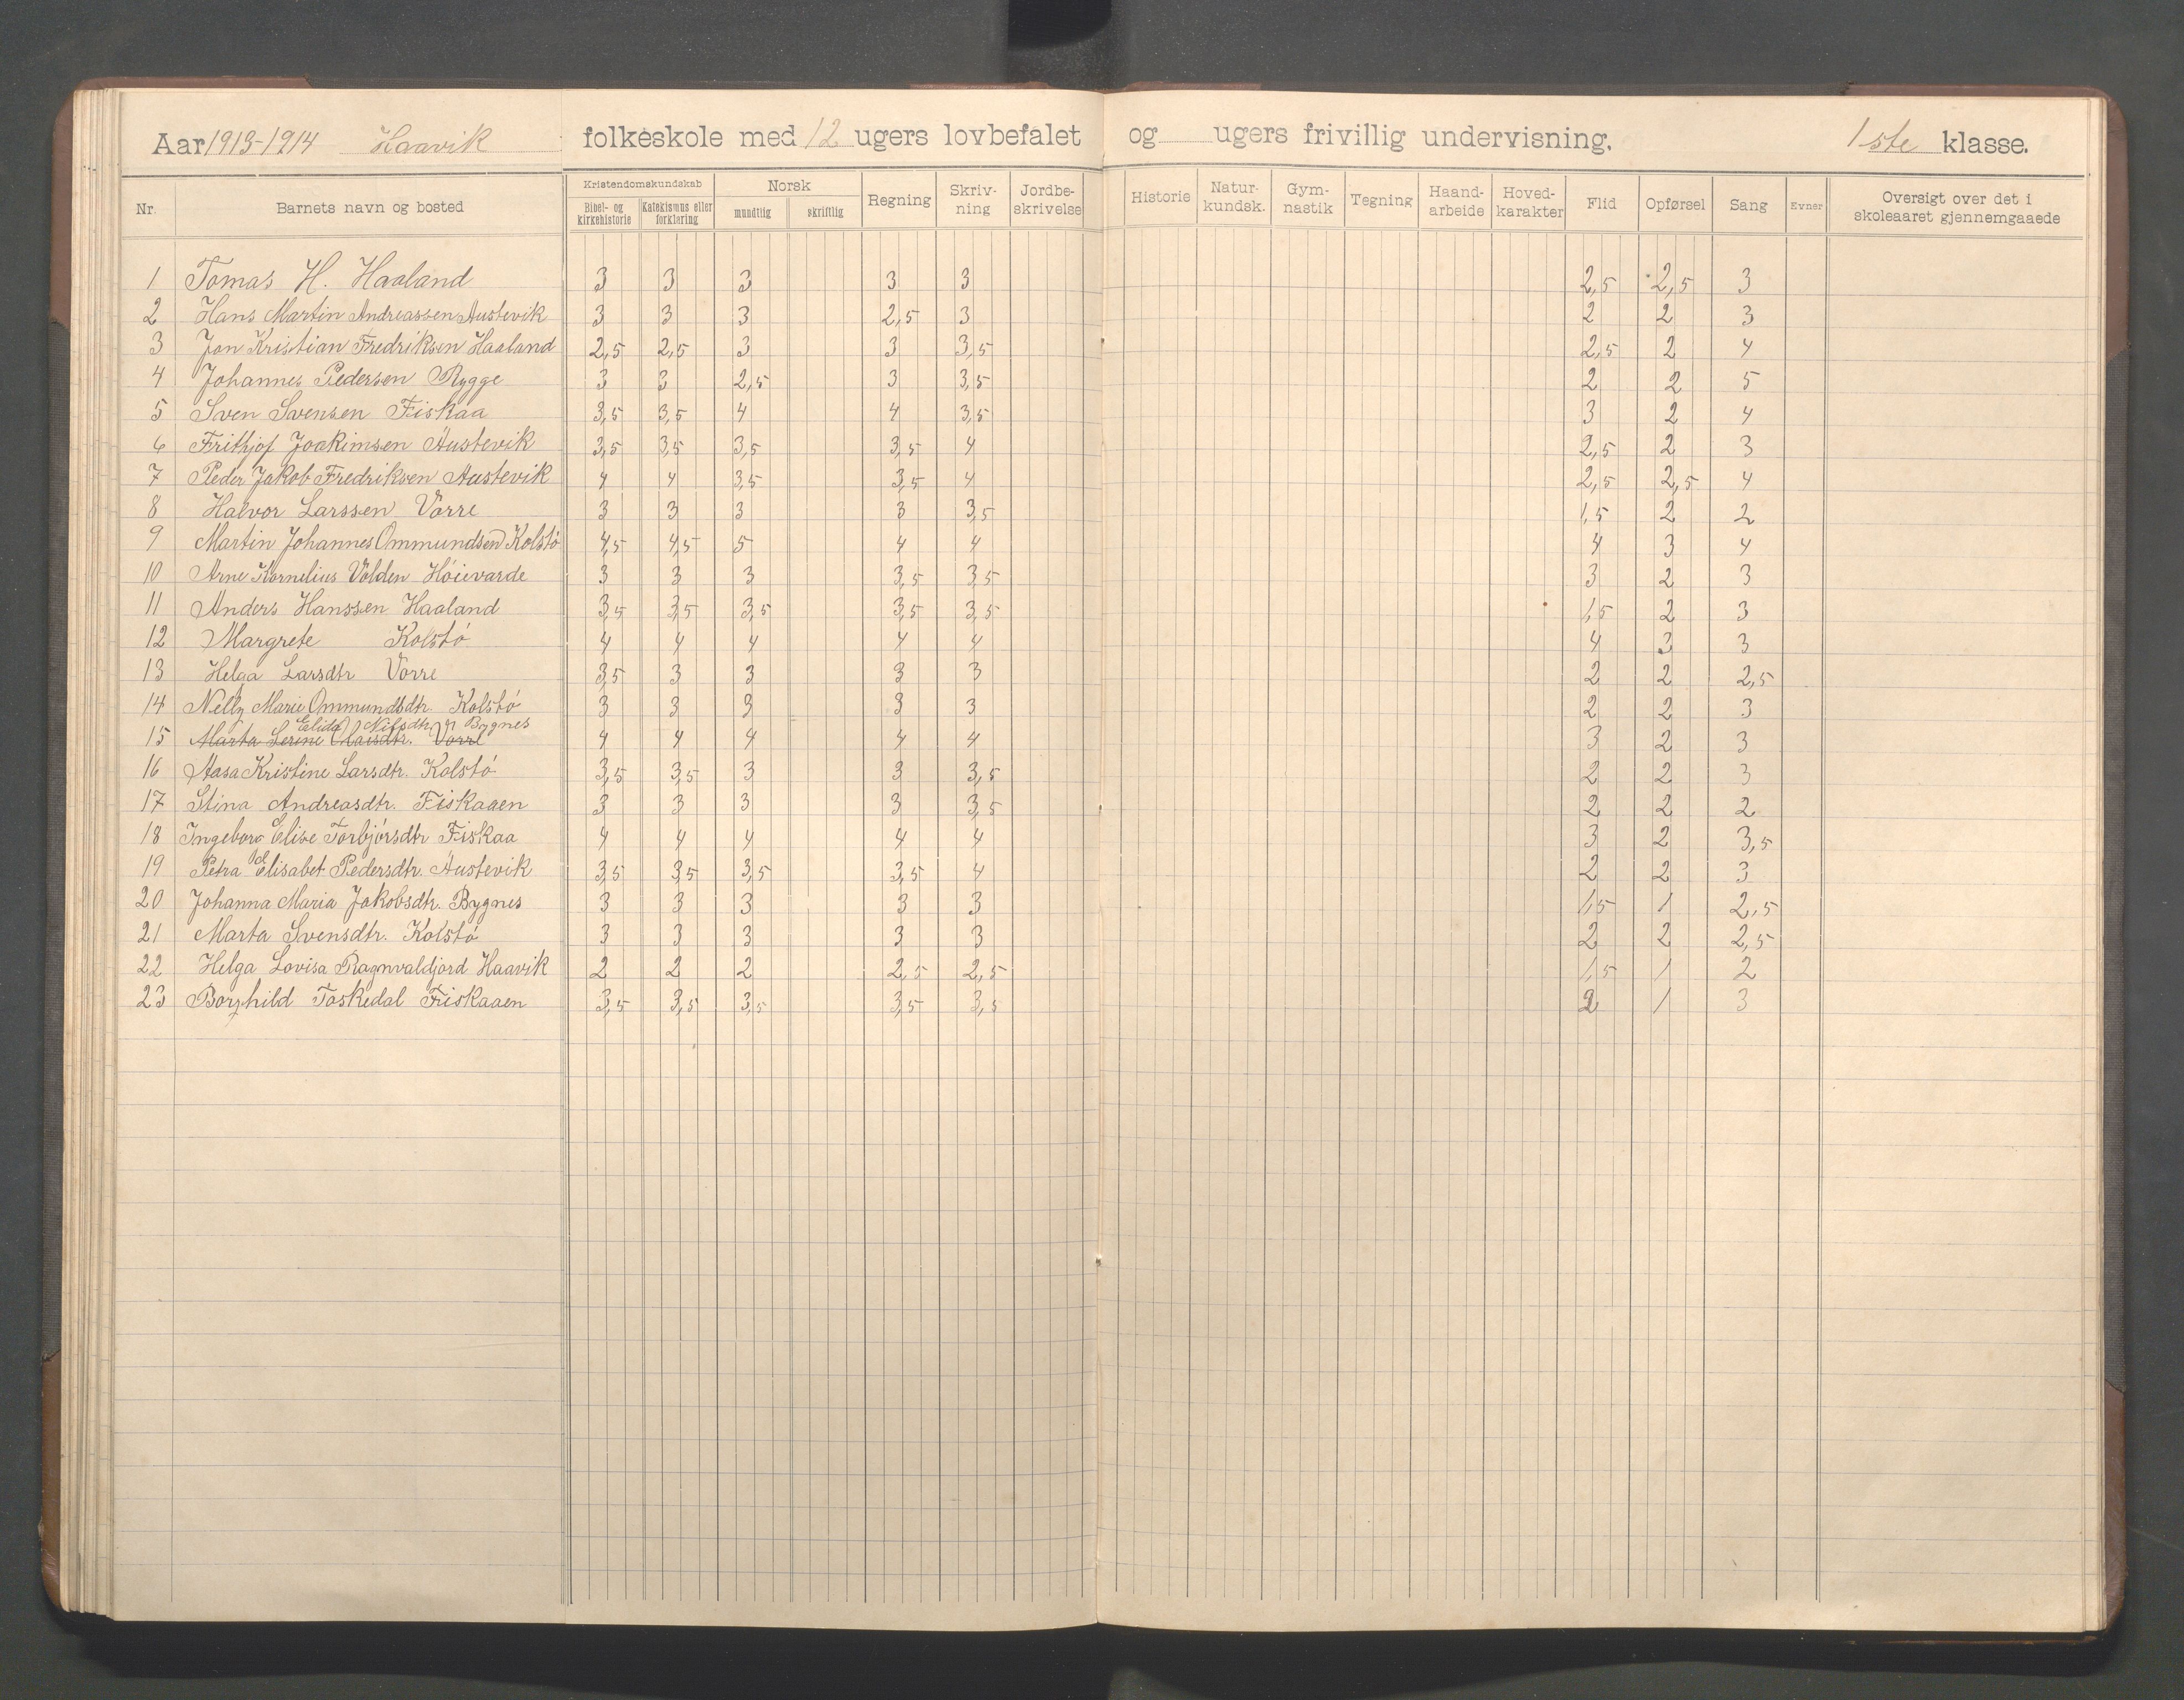 Aar 1913-1914 Haavik folkeskole med 12 ugers lovbefalet og ugers frivillig undervisning. 1ste klasse.
Nr. Barnets navn og bosted Kristendomskundskab Bibel- og kirkehistorie Katekismus eller forklaring Norsk mundtlig skriftlig Regning Skriv-ning Jordbe-skrivelse Historie Natur-kundsk. Gym-nastik Tegning Haand-arbeide Hoved-karakter Flid Opførsel Sang Evner Oversigt over det i skoleaaret gjennemgaaede
1 Tomas H. Haaland 3 3 3 3 3 2,5 2,5 3
2 Hans Martin Andreassen Austevik 3 3 3 2,5 3 2 2 3
3 Jon Kristian Fredriksen Haaland 2,5 2,5 3 3 3,5 2,5 2 4
4 Johannes Pedersen Rygge 3 3 2,5 3 3,5 2 2 5
5 Sven Svensen Fiskaa 3,5 3,5 4 4 3,5 3 2 4
6 Frithjof Joakimsen Austevik 3,5 3,5 3,5 3,5 4 2,5 2 3
7 Peder Jakob Fredriksen Austevik 4 4 3,5 3,5 4 2,5 2,5 4
8 Halvor Larssen Vorre 3 3 3 3 3,5 1,5 2 2
9 Martin Johannes Ommundsen Kolstó 4,5 4,5 5 4 4 4 3 4
10 Arne Kornelius Volden Hóievarde 3 3 3 3,5 3,5 3 2 3
11 Anders Hanssen Haaland 3,5 3,5 3,5 3,5 3,5 1,5 2 3
12 Margrete Kolstó 4 4 4 4 4 4 3 3
13 Helga Larsdtr Vorre 3,5 3 3 3 3 2 2 2,5
14 Nelly Marie Ommundsdtr. Kolstó 3 3 3 3 3 2 2 3
Elida Nilsdtr. Bygnes
15 Marta Serine Olaisdtr. Vorre 4 4 4 4 4 3 2 3
16 Aasa Kristine Larsdtr. Kolstó 3,5 3,5 3 3 3,5 2 2 3
17 Stina Andreasdtr. Fiskaaen 3 3 3 3 3,5 2 2 2
18 Ingeborg Elise Torbjórsdtr Fiskaa 4 4 4 4 4 3 2 3,5
19 Petra Elisabet Pedersdtr. Austevik 3,5 3,5 3,5 3,5 4 2 2 3
20 Johanna Maria Jakobsdtr. Bygnes 3 3 3 3 3 1,5 1 2,5
21 Marta Svensdtr. Kolstó 3 3 3 3 3 2 2 2,5
22 Helga Lovisa Ragnvaldjord Haavik 2 2 2 2,5 2,5 1,5 1 2
23 Borghild Toskedal Fiskaaen 3,5 3,5 3,5 3,5 3,5 2 1 3